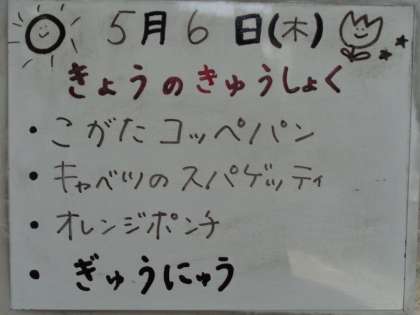 5月6日(木)
きょうのきゅうしょく
・こがたコッペパン
・キャベツのスパゲッティ
・オレンジポンチ
・ぎゅうにゅう